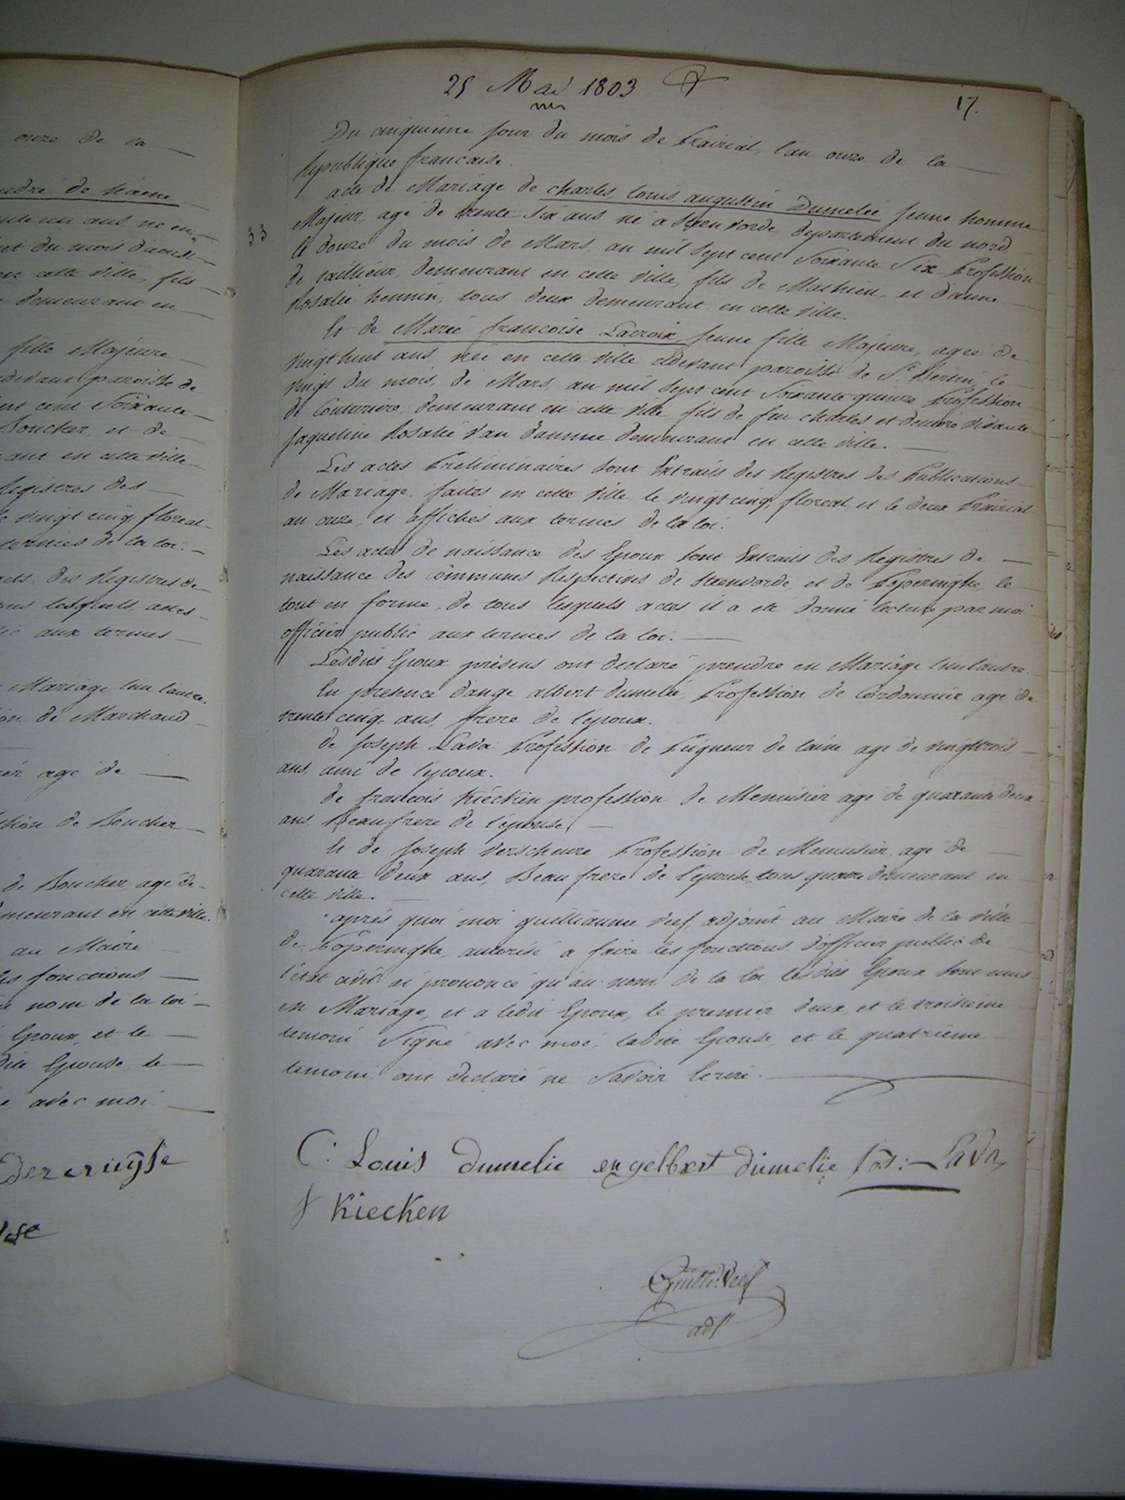 onze de la
ans né en
du mois
en cette ville, fils
demeurant en
fille Majeure
devant paroisse de
cent Soixante
Boucher, et de
en cette ville
Registres des
le vingt cinq floreal
termes de la loi.
des Registres de
lesquels actes
aux termes
Mariage lun lautre.
de Marchand
age de
de Boucher
de Boucher, age de
demeurant en cette ville.
au Maire
les fonctions
nom de la loi
Epoux, et le
dite Epouse, le
avec moi
Dereruijsse
25 Mai 1803
17.
Du cinquieme jour du mois de Prairial, l'an onze de la
Republique francaise.
33
acte de Mariage de charles, Louis augustin Dumelie jeune homme
Majeur, agé de trente Six ans né a Steenvorde departement du nord
le douze du mois de Mars, an mil sept cent Soixante Six Profession
de jaillieur, demeurant en cette ville, fils de Mathieu, et d'anne
Rosalie hennin, tous deux demeurant en cette ville.
Et de Marie francoise Lacroix jeune fille Majeure, ageé de
vingt huit ans, neé en cette ville cidevant paroisse de St. Bertin, le
vingt du mois, de Mars, an mil sept cent Soixante quinze Profession
de Couturiere, demeurant en cette ville fils de feu charles et
Jaqueline Rosalie Van damme demeurant en cette ville.
Les actes Preliminaires sont Extraits des Registres des Publications
de Mariage, faites en cette ville le vingt cinq floreal, et le deux Prairial
an onze, et affichés aux termes de la loi.
Les actes de naissance des Epoux sont Extraits des Registres de
naissance des communes Respectives de Steenvorde, et de Poperinghe, le
tout en forme, de tous lesquels actes il a eté donné lecture par moi
officier public aux termes de la loi.
Lesdits Epoux présens ont declaré prendre en Mariage lun lautre
En presence d'ange albert dumelie, Profession de Cordonnier age de
trente cinq ans frere de l'epoux.
de Joseph Lava Profession de Pigneur de laine age de vingt trois
ans ami de l'epoux.
de francois Kiecken profession de Menuisier agé de quarante deux
ans Beaufrere de l'epouse,
Et de Joseph Verscheure Profession de Menuisier, age de
quarante deux ans, Beaufrere de l'epouse, tous quatre demeurant en
cette ville.
après quoi moi guilliaume Neef, adjoint au Maire de la ville
de Poperinghe, autorisé a faire les fonctions d'officier public de
l'etat civil ai prononcé qu'au nom de la loi lesdits Epoux sont unis
en Mariage, et a ledit Epoux, le premier deux, et le troisieme
temoin Signé avec moi, ladite Epouse, et le quatrieme
temoin ont declaré ne Savoir Ecrire.
C: Louis dumelie engelbert dumelie Jos: Lava
f Kiecken
Guille Neef
adjt